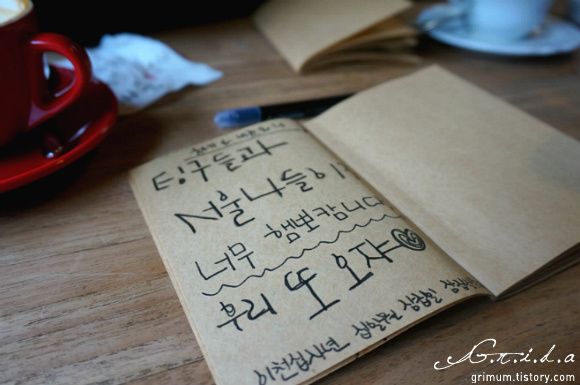 팅구들과
서울나들이
너무 햄뽀캄니다
우리 또 오자
이천십사년 십일월
G.r.i.d.a
grimum.tistory.com